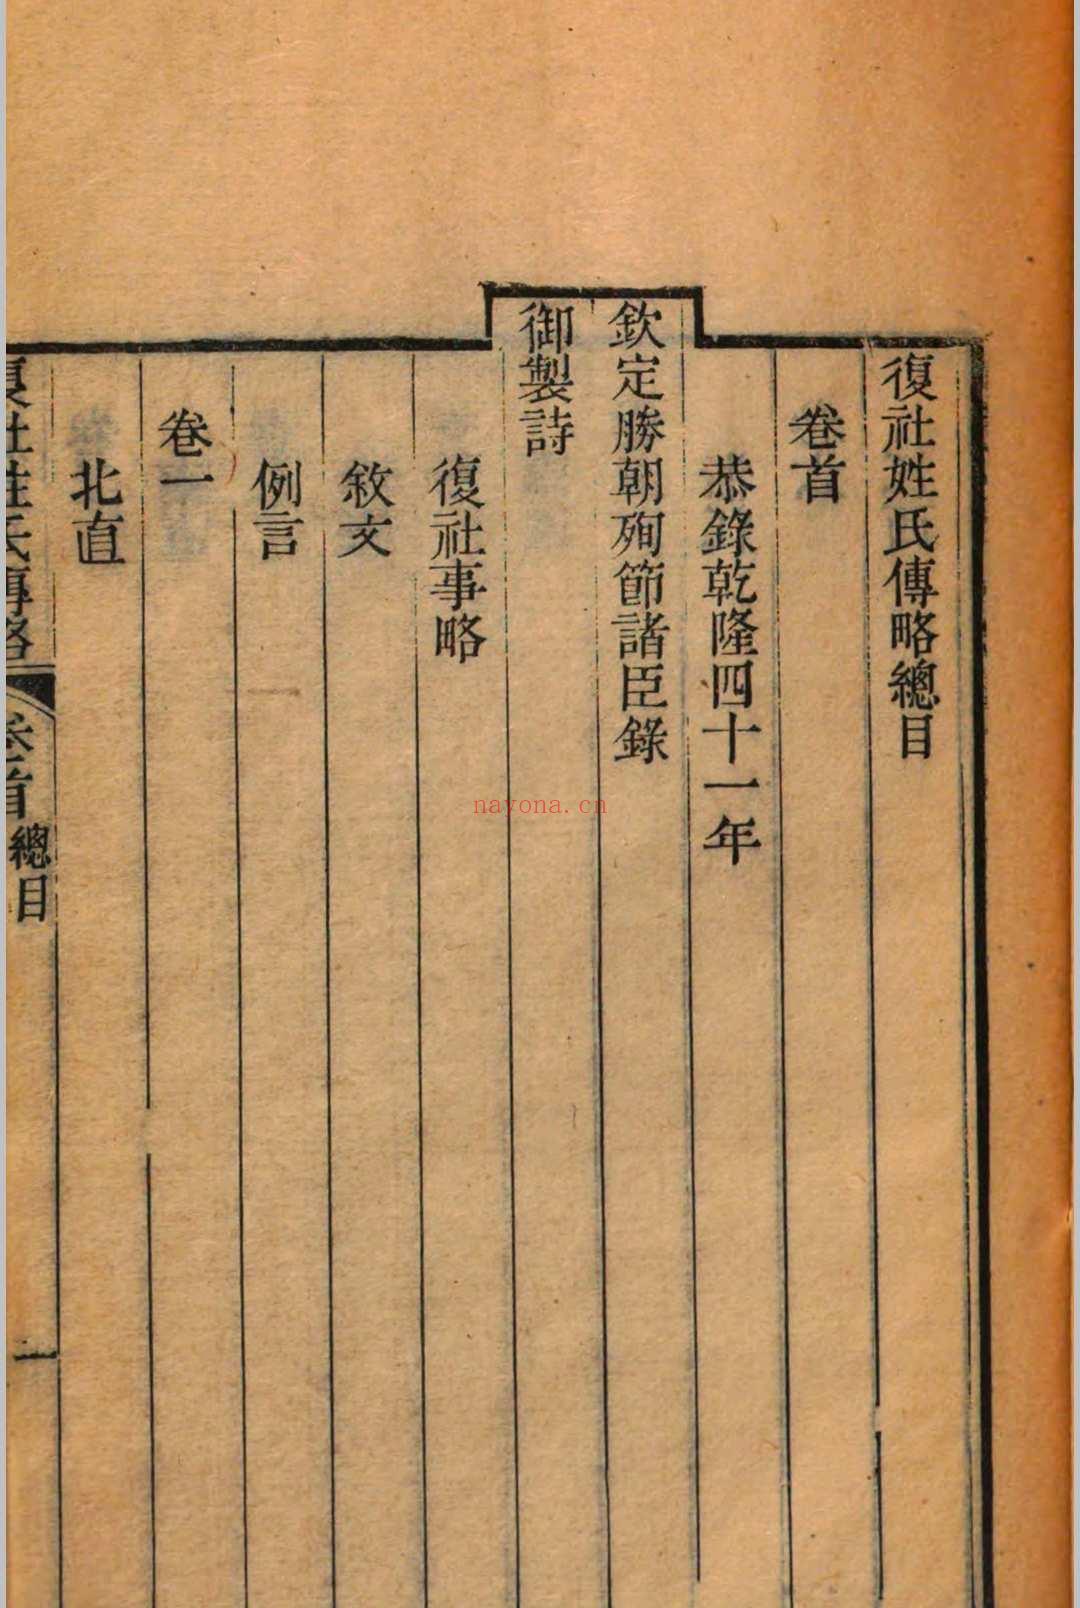 復社姓氏傳略總目
卷首
恭錄乾隆四十一年
欽定勝朝殉節諸臣錄
御製詩
復社事略
敘文
例言
卷一
北直
復社姓氏傳略 卷首 總目 一
nayona.cn